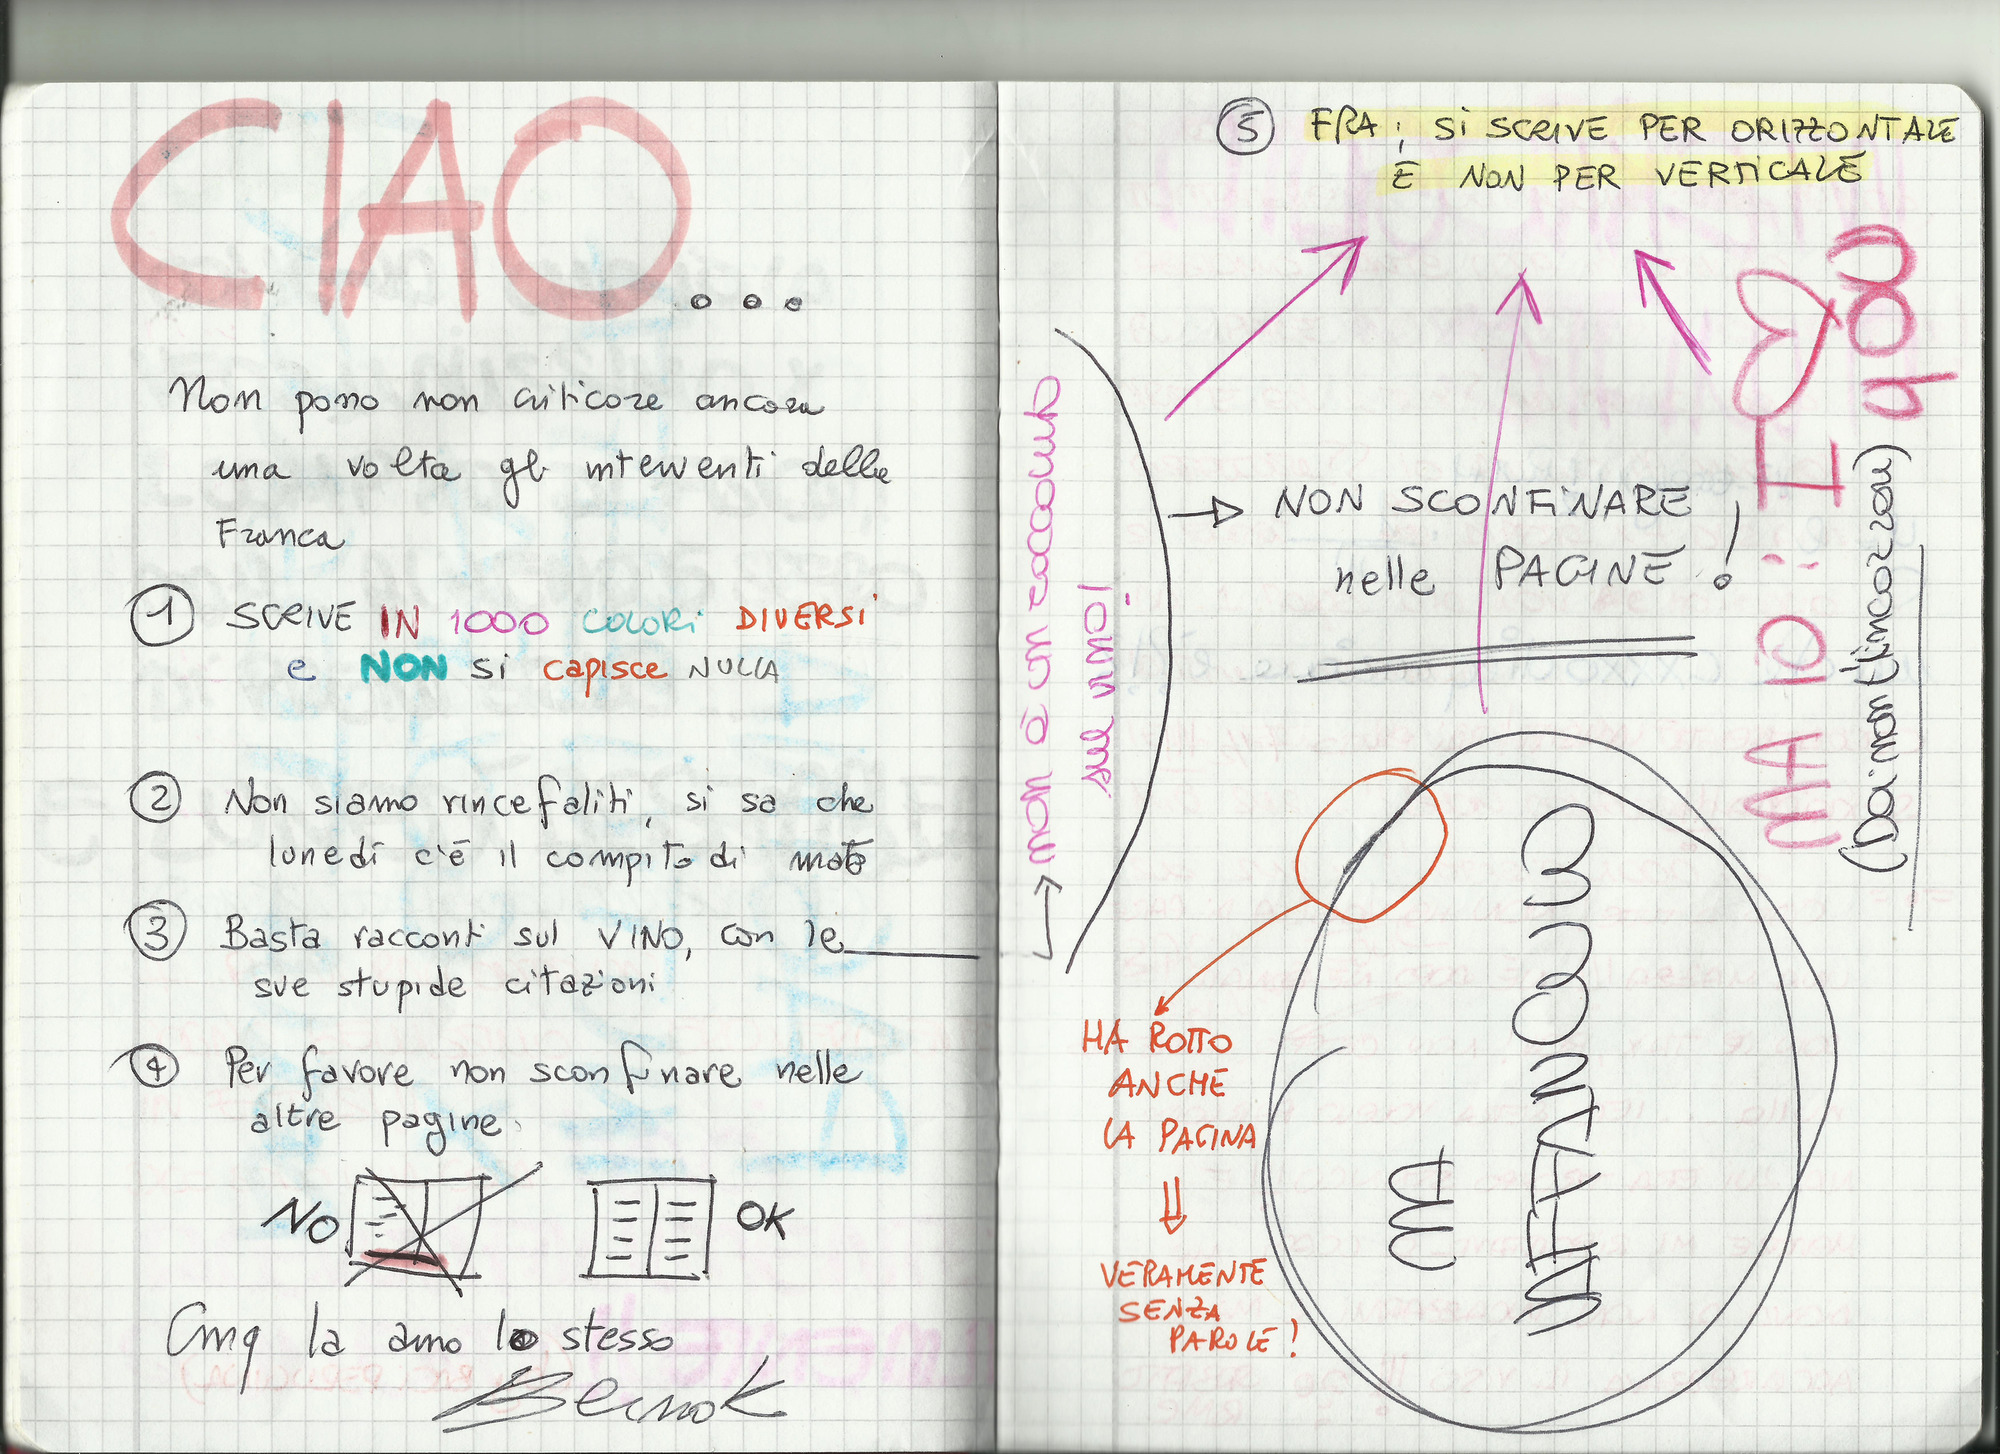 CIAO...
Non posso non criticare ancora
una volta gli interventi della
Franca
1 SCRIVE IN 1000 COLORI DIVERSI
e NON si capisce NULLA
2 Non siamo rincefaliti, si sa che
lunedí c'é il compito di mate
3 Basta racconti sul VINO, con le
sue stupide citazioni
4 Per favore non sconfinare nelle
altre pagine.
NO
OK
Cmq la amo lo stesso
5 FRA, SI SCRIVE PER ORIZZONTALE
E NON PER VERTICALE
→ non è un racconto
sul vino!
→ NON SCONFINARE
nelle PAGINE!
MA IO: I
you
(Dai non t'incazzare)
HA ROTTO
ANCHE
LA PAGINA
VERAMENTE
SENZA
PAROLE!